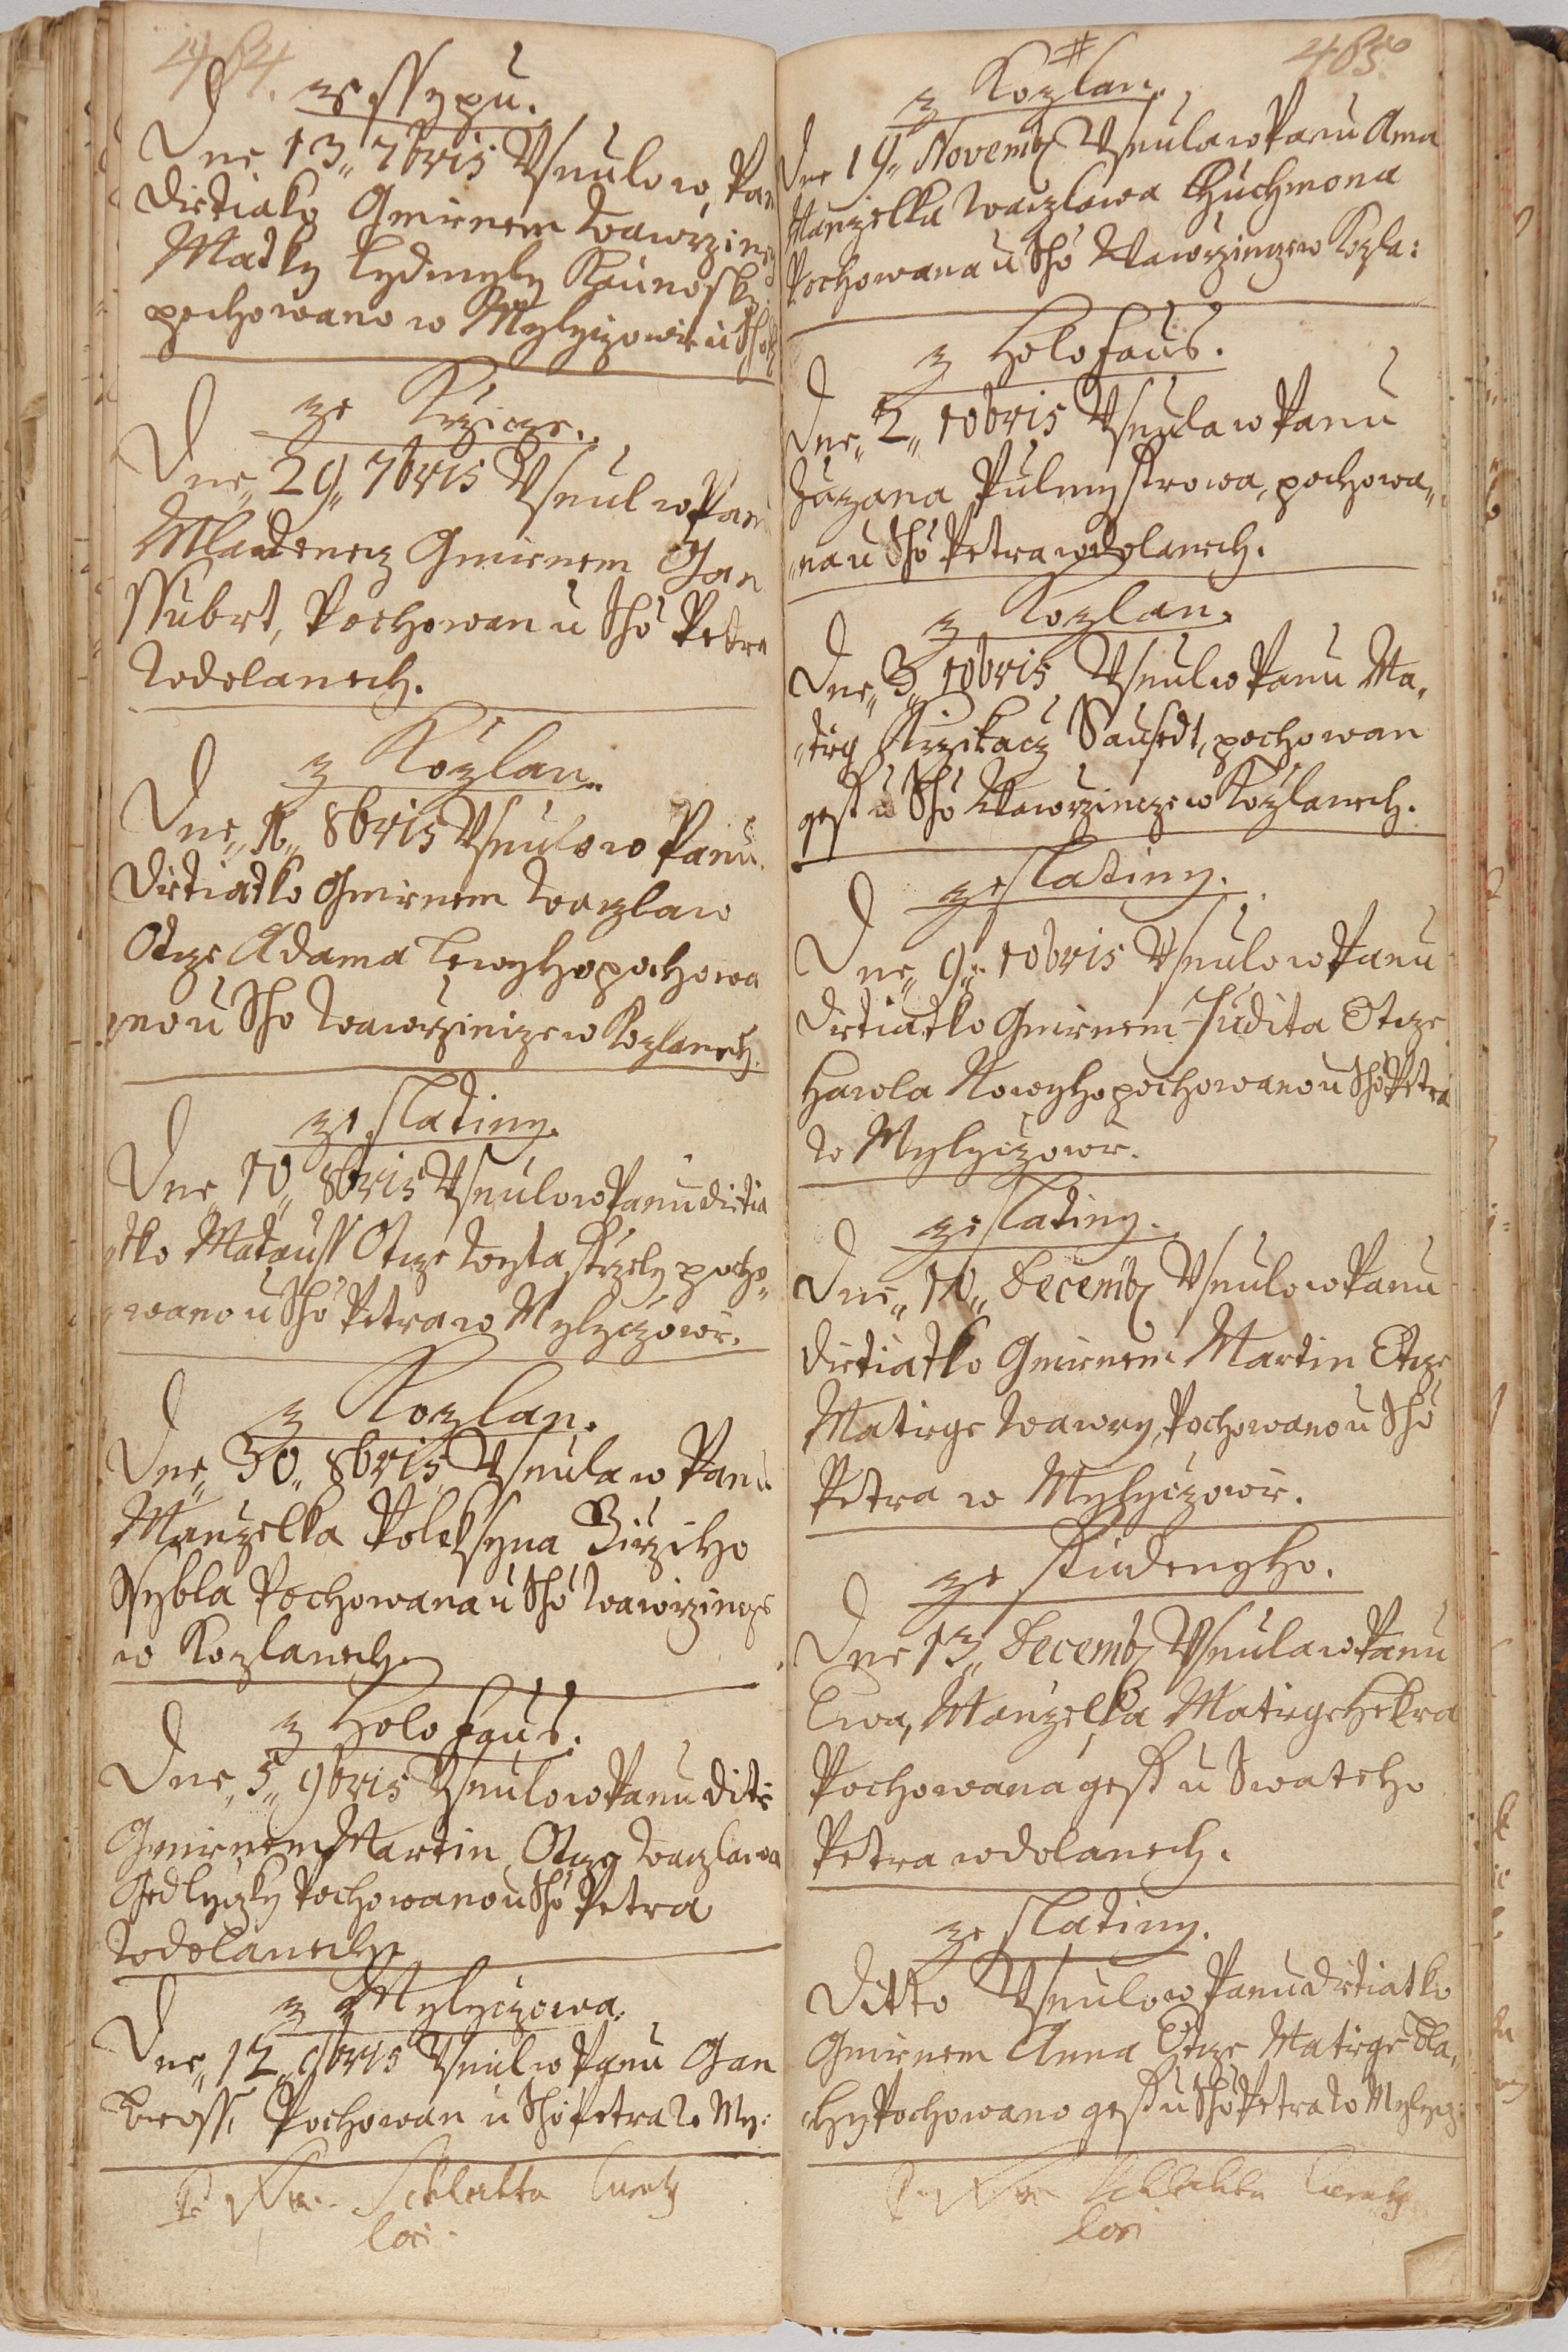 464.
ze ssypu.
Dne 13„ 7bris Usnulo w Pan
Dietiatko Gmenem Wawrzinecz
Matky Lydmyly Kaunesky
pochowano w Mylyczowie u Sho
ze Krzicze.
Dne„ 29„ 7bris Usnul w Pan
Mladenecz Gmenem Jan
Ssubrt, Pochowan u Sho Petra
Wdolanech.
z Kozlan.
Dne„ 8bris Usnulo w Panu
Dietiatko Gmenem Waczlaw
Otcze Adama Lewyho pochowa
no u Sho Wawrzincze w Kozlanech.
ze slatiny.
Dne„ 10„ 8bris Usnulo w Panu dietia
tko Matauss Otcze Woyta strzely pocho„
„wano u Sho Petra w Mylyczowie.
z Kozlan.
Dne„ 30„ 8bris Usnula w Panu
Manzelka Poleksyna Girziho
Ssybla Pochowana u Sho Wawrzincze
w Kozlanech
z Holofaus.
Dne„ 5„ 9bris Usnulo w Panu ditie
Gmenem Martin Otcze Waczlawa
Gedlyczky Pochowano u Sho Petra
Wdolanech
z Mylyczowa.
Dne„ 12„ 9bris Usnul w Panu Jan
Bross, Pochowan u Sho Petra W My:
P. Schlechta Curatg
loci.
465
#
z Kozlan.
Dne 19„ Novemb Usnula w Panu Anna
Manzelka Waczlawa Chuchmona
Pochowana u Sho Wawrzincze w Kozla:
z Holofaus.
Dne„ 2„ 10bris Usnula w Panu
Zuzana Pulmystrowa, pochowa„
„na u Sho Petra wdolanech.
z Kozlan.
Dne„ 3„ 10bris Usnul w Panu Ma„
„tieg Krzikacz Saused, pochowan
gest u Sho Wawrzincze w Kozlanech.
ze slatiny.
Dne„ 9„ 10bris Usnulo w Panu
Dietiatko Gmenem Judita Otcze
Hawla Nowyho pochowano u Sho Petra
W Mylyczowie.
ze slatiny.
Dne„ 10„ Decemb Usnulo w Panu
Dietiatko Gmenem Martin Otcze
Matiege Wawry, Pochowano u Sho
Petra w Mylyczowie.
ze studenyho.
Dne 13„ Decemb Usnula w Panu
Ewa, Manzelka Matiege Hekra
Pochowana gest u Swateho
Petra wdolanech.
ze slatiny.
Ditto Usnulo w Panu dietiatko
Gmenem Anna Otcze Matiege Bla„
„hy Pochowano gest u Sho Petra W Mylycz:
P. Schlechta Curatg
loci